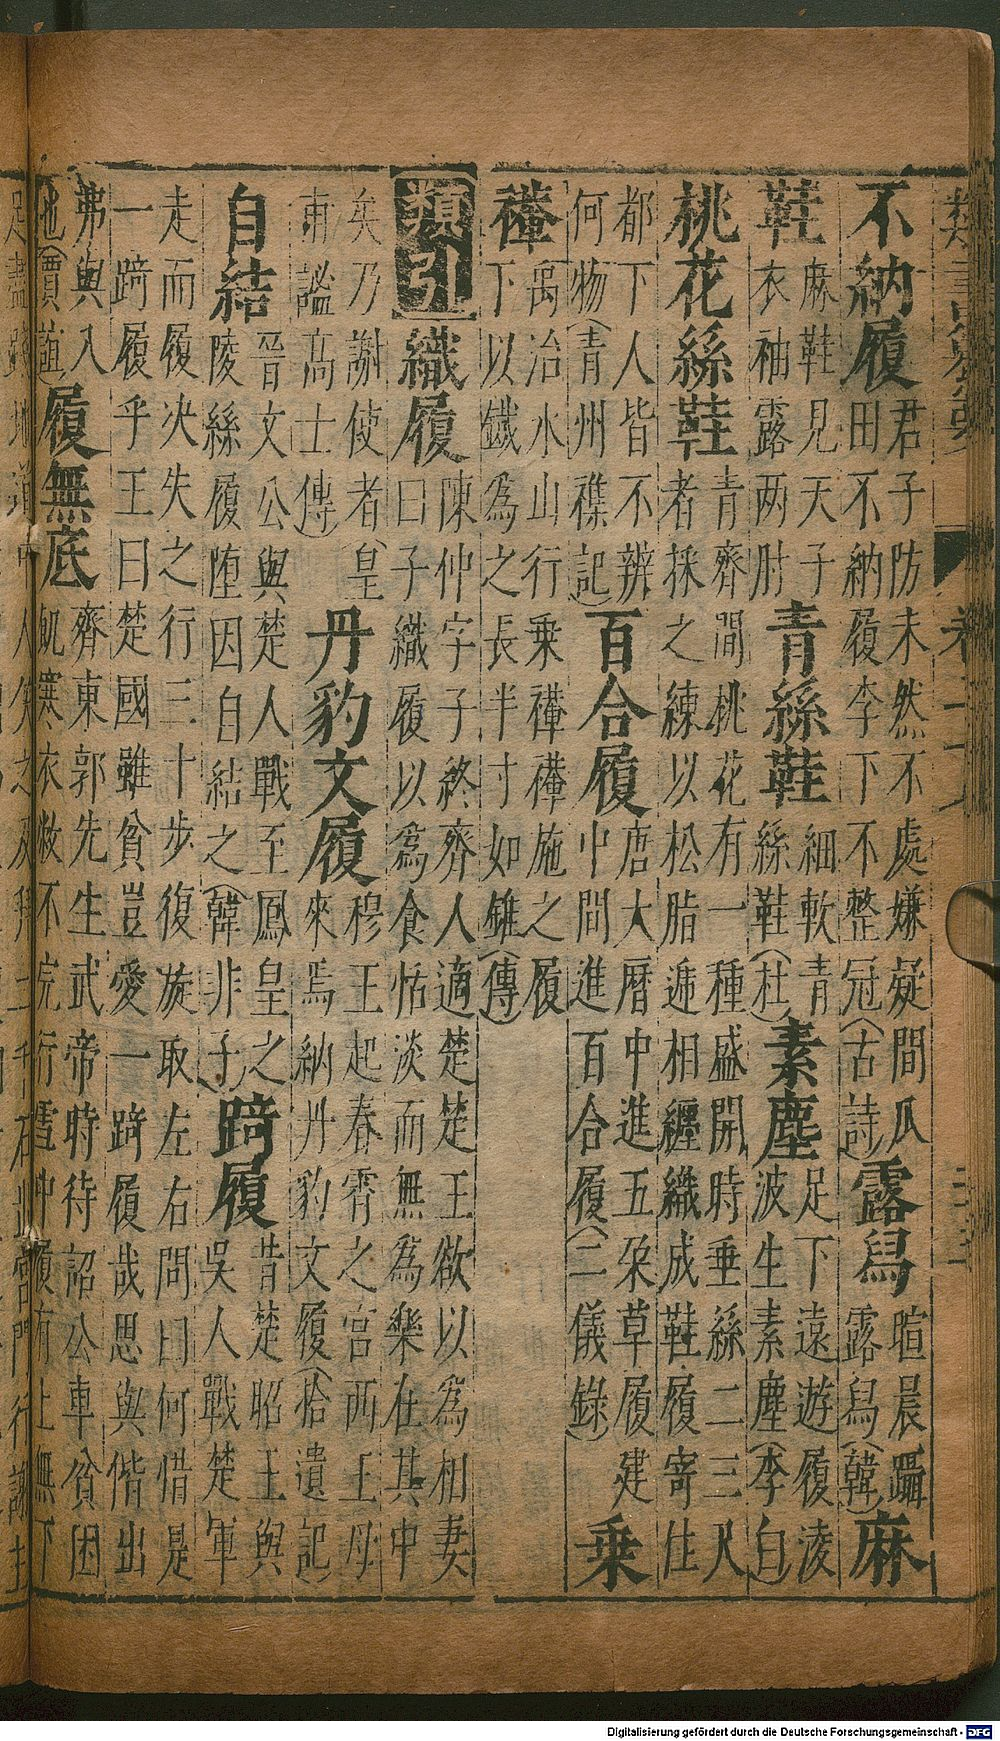 不納履 君子防未然不處嫌疑間瓜
田不納履李下不整冠（古詩） 露舄 暄晨躡
露舄（韓） 麻
鞋 麻鞋見天子
衣袖露两肘 青絲鞋 細軟青
絲鞋（杜） 素塵 足下遠遊履淩
波生素塵（李白）
桃花絲鞋 青齊間桃花有一種盛開時垂絲二三尺
者採之練以松脂遞相纏織成鞋履寄徃
都下人皆不辨
何物（青州襍記） 百合履 唐大曆中進五朶草履建
中間進百合履（二儀錄） 乗
䡞 禹治水山行乗䡞䡞施之履
下以鐵為之長半寸如錐（傳）
類引 織履 陳仲字子終齊人適楚楚王欲以為相妻
曰子織履以為食恬淡而無為樂在其中
矣乃謝使者（皇
甫謐高士傳） 丹豹文履 穆王起春霄之宮西王母
來焉納丹豹文履（拾遺記）
自結 晉文公與楚人戰至鳳皇之
陵絲履堕因自結之（韓非子） 踦履 昔楚昭王與
吳人戰楚軍
走而履决失之行三十步復旋取左右問曰何惜是
一踦履乎王曰楚國雖貧豈愛一踦履哉思與偕出
弗與入
也（賈誼） 履無底 齊東郭先生武帝時待詔公車貧困
飢寒衣敝不完行雪中履有上無下
Digitalisierung gefördert durch die Deutsche Forschungsgemeinschaft - DFG